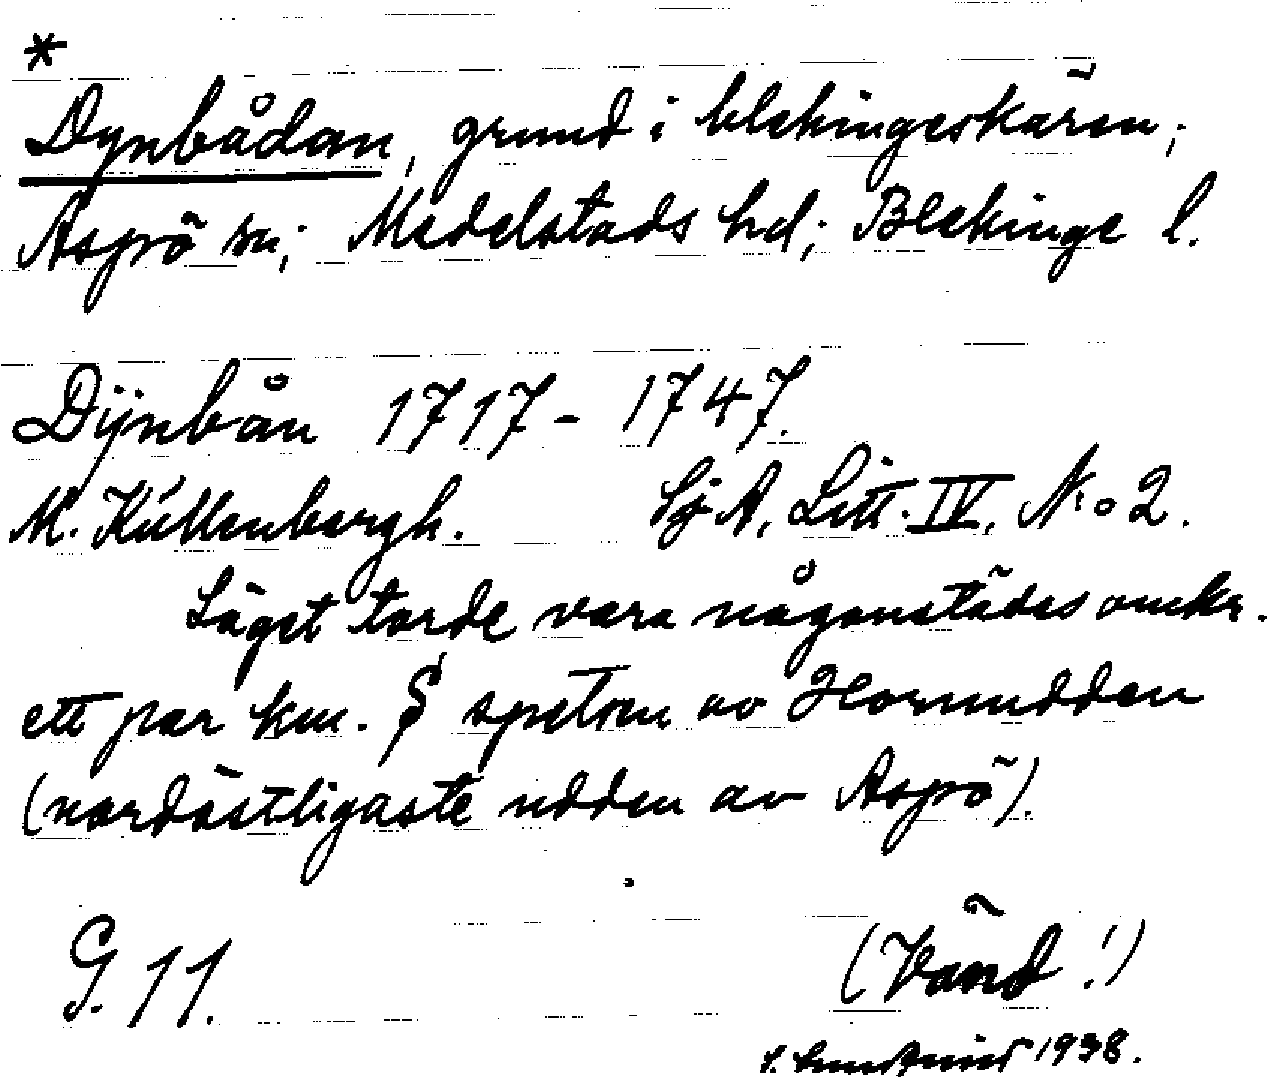 *
Dynbådan, grund i blekingeskären;
Aspö sn; Medelstads hd; Blekinge l.
Dÿnbån 1717 - 1747.
M. Küllenbergh. Sj A, Litt. IV, No 2.
Läget torde vara någonstädes omkr.
ett par km. S spetsen av Hornudden
(nordöstligaste udden av Aspö).
G. 11. (Vänd!)
1938.